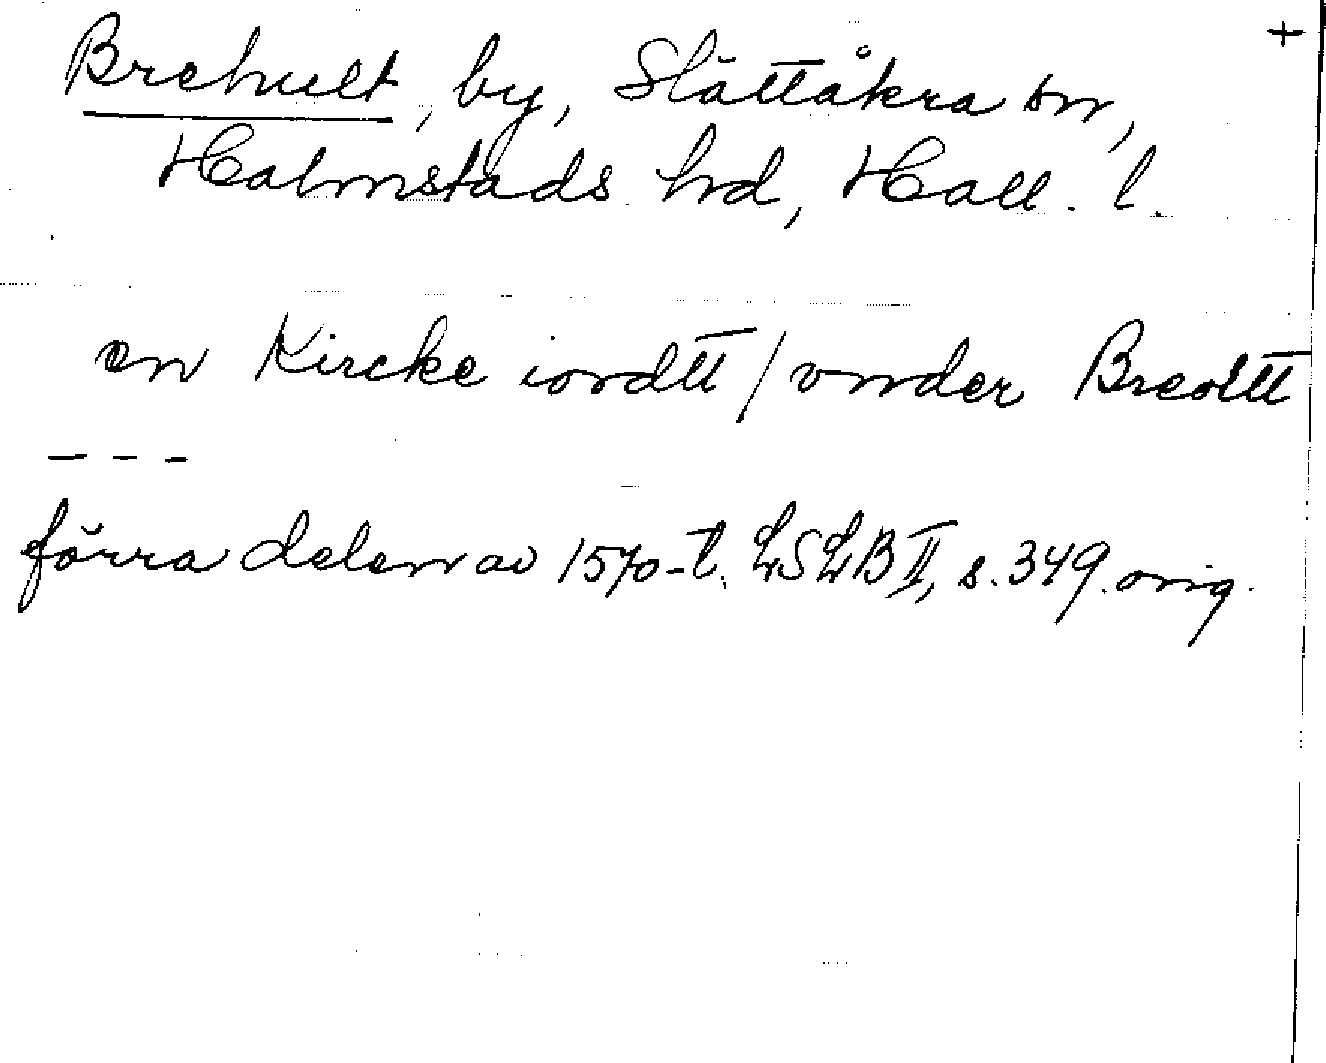 +
Brehult, by, Slättåkra sn,
Halmstads hd, Hall. l.
en Kircke iordtt / vnder Breoltt
- - -
förra delen av 1570-t. LSLB II, s. 349. orig.